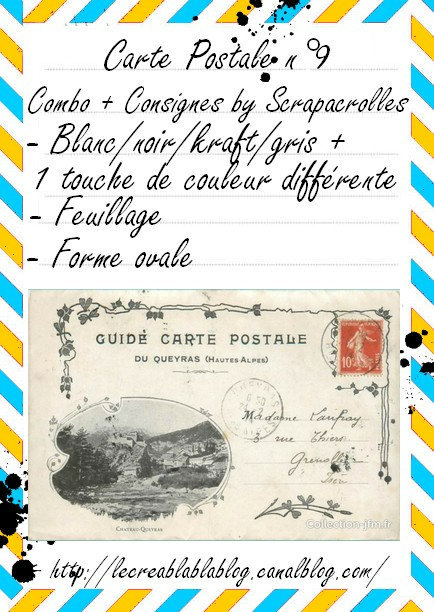 Carte Postale n°9
Combo + Consignes by Scrapacrolles
- Blanc/noir/kraft/gris +
1 touche de couleur différente
- Feuillage
- Forme ovale
GUIDE CARTE POSTALE
DU QUEYRAS (HAUTES-ALPES)
10
Madame
3 rue Thiers
Grenoble
Isère
CHATEAU-QUEYRAS
Collection-jfm.fr
http://lecreablablablog.canalblog.com/